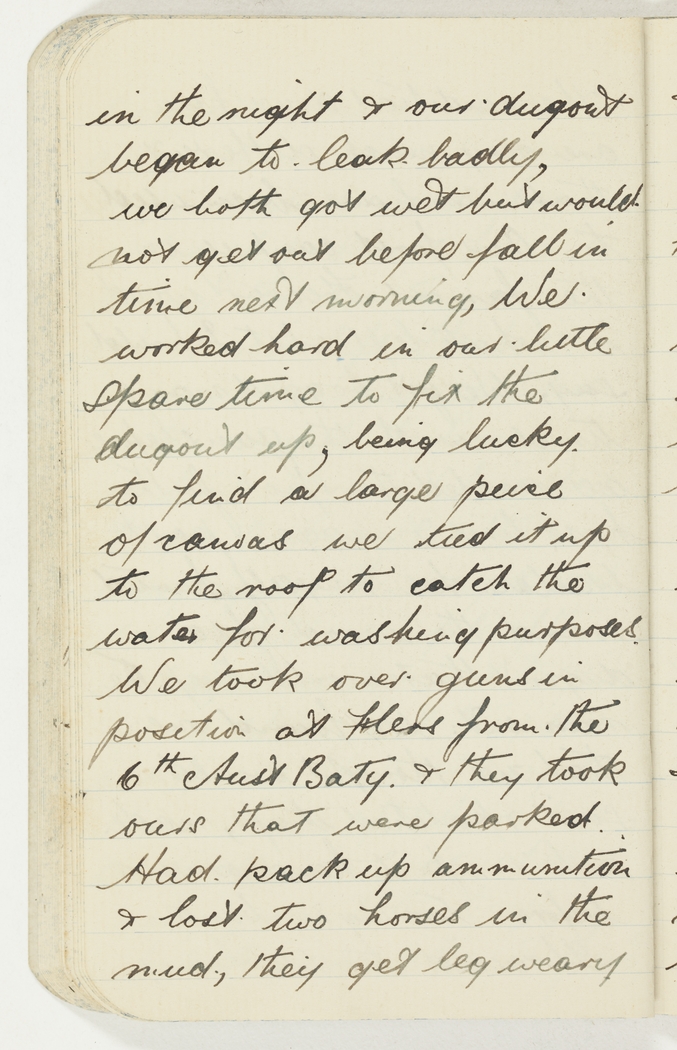 in the night & our dugout
began to leak badly,
we both got wet but would
not get out before fall in
time next morning, We
worked hard in our little
spare time to fix the
dugout up, being lucky
to find a large peice
of canvas we tied it up
to the roof to catch the
water for washing purposes.
We took over guns in
position at Flers from the
6th Aust Baty. & they took
ours that were parked.
Had pack up ammunition
& lost two horses in the
mud, they get leg weary